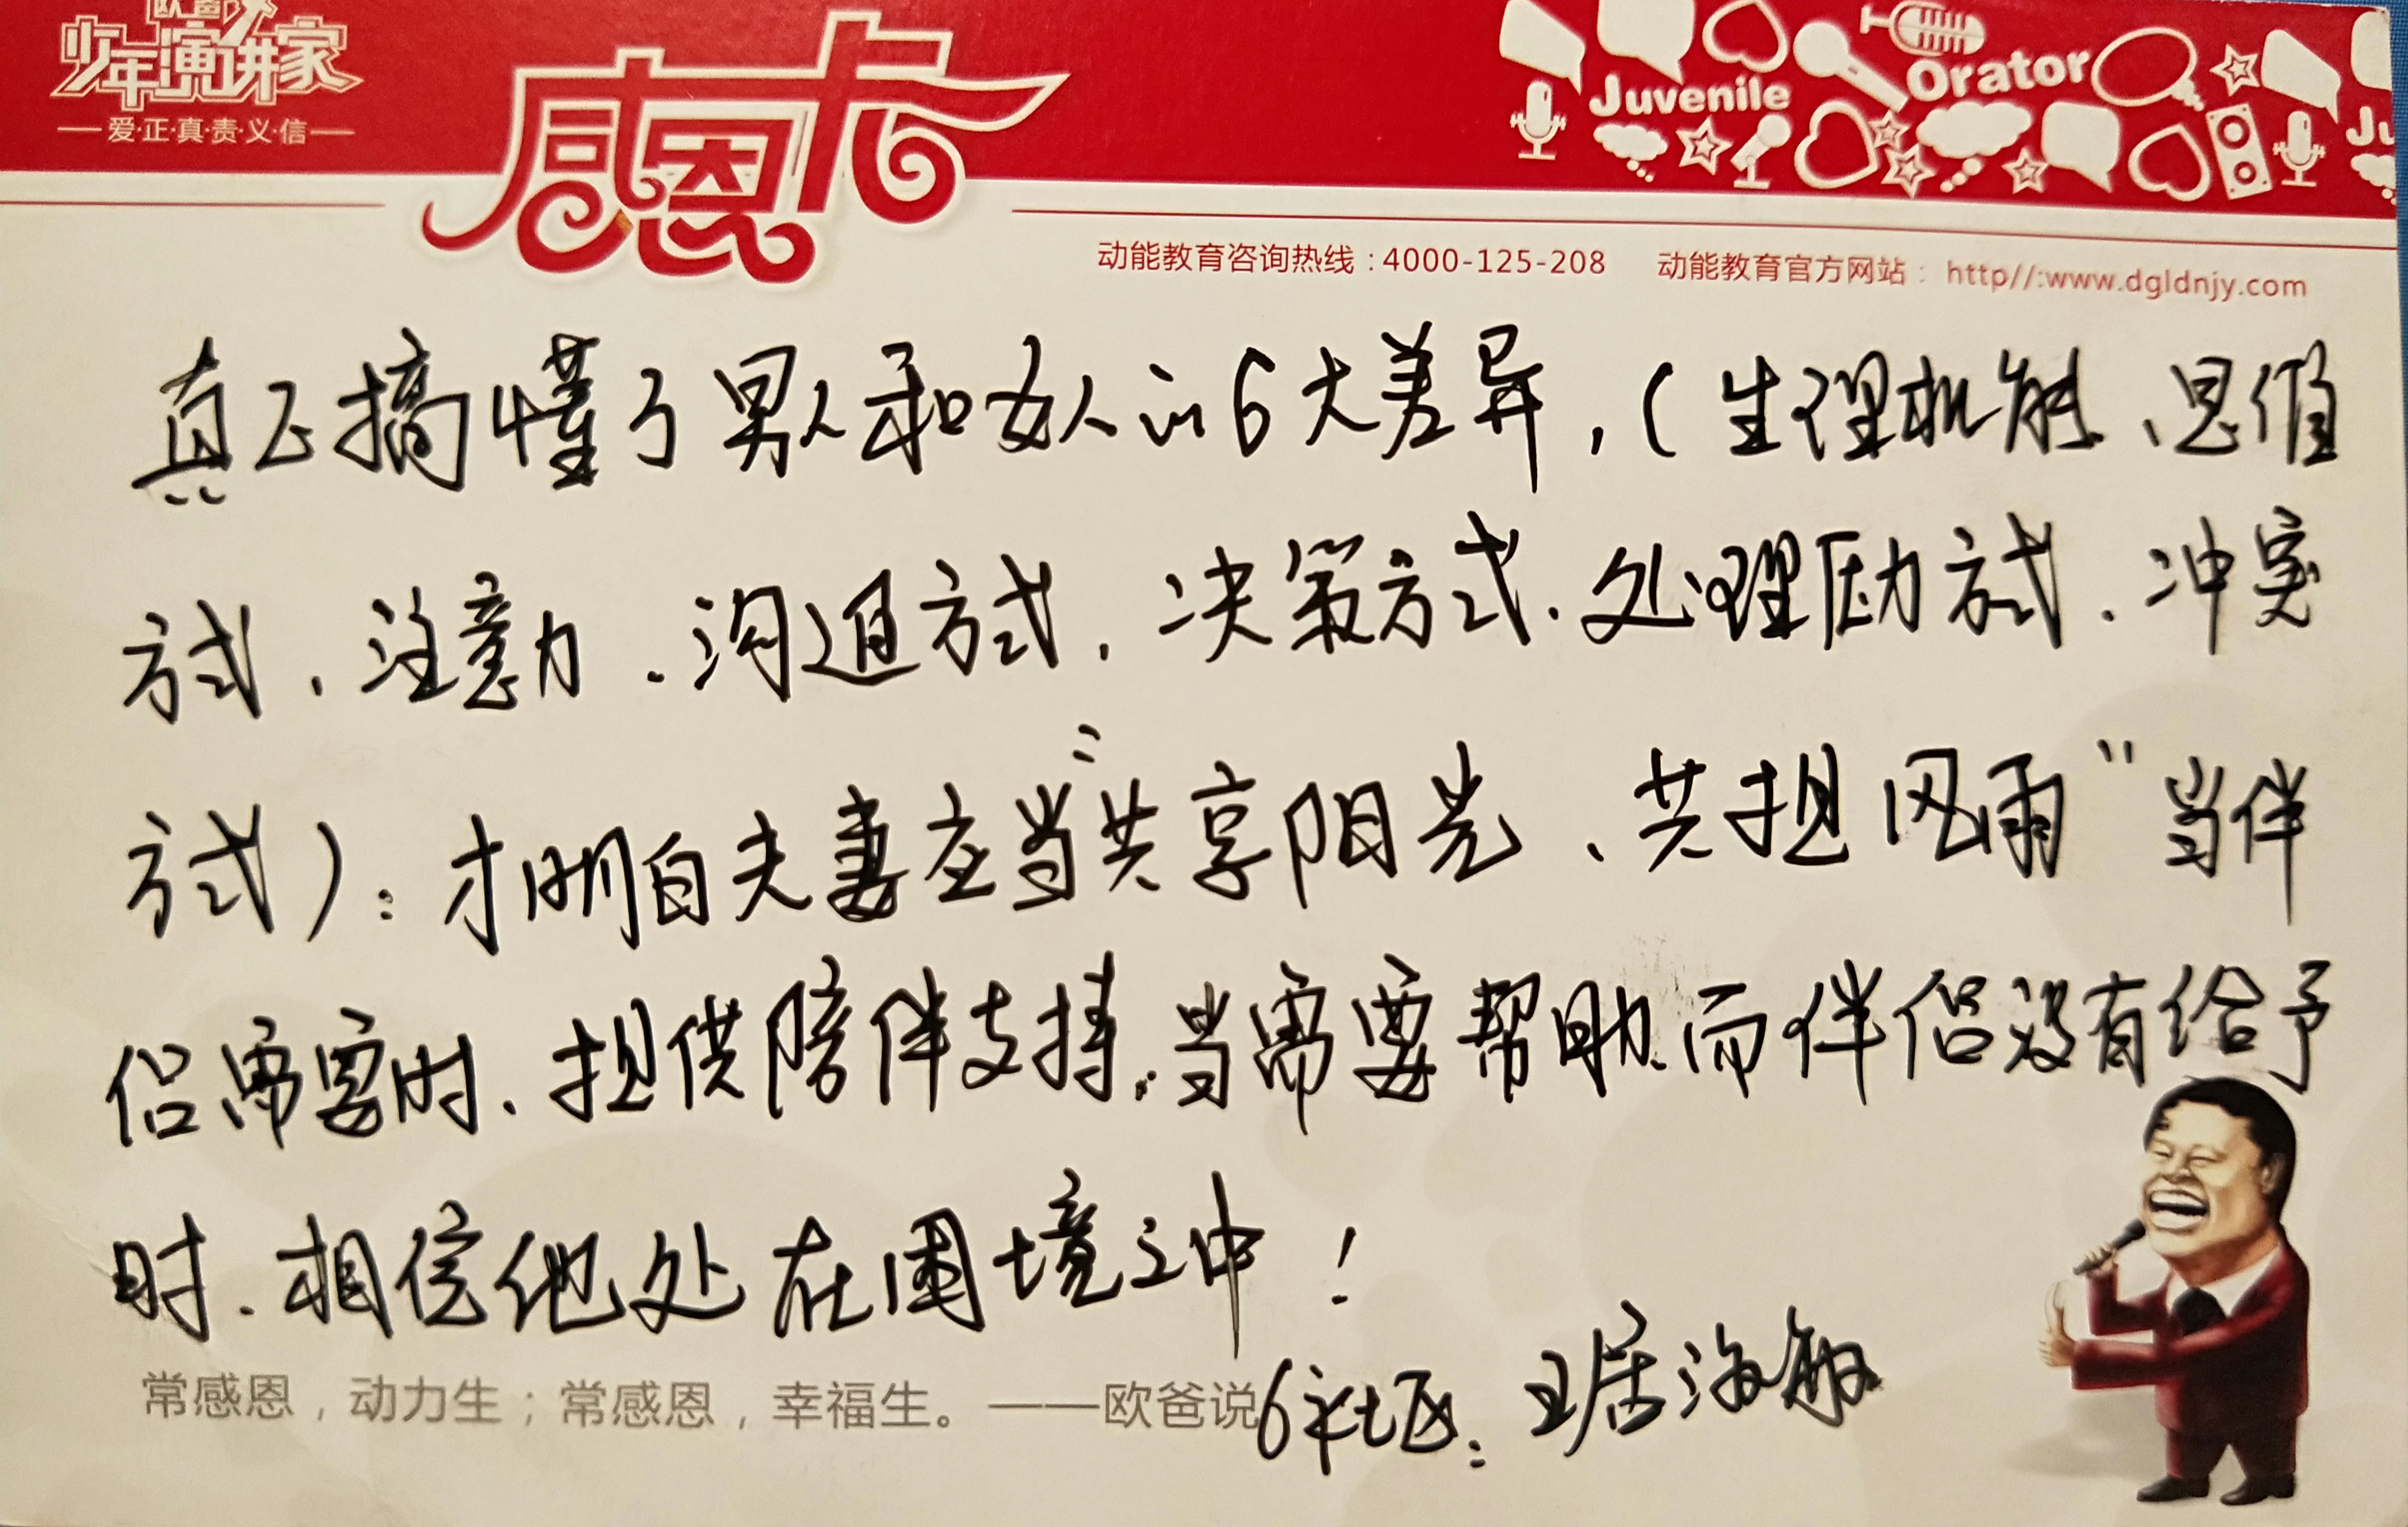 欧爸
少年演讲家
爱·正·真·责·义·信
感恩卡
Juvenile Orator
Ju
动能教育咨询热线：4000-125-208 动能教育官方网站： http//:www.dgldnjy.com
真正搞懂了男人和女人的6大差异，（生理机能、思维
方式、注意力、沟通方式、决策方式、处理压力方式、冲突
方式）：才明白夫妻应当“共享阳光、共担风雨”当伴
侣需要时、担供陪伴支持，当需要帮助而伴侣没有给予
时、相信他处在困境之中！
常感恩，动力生；常感恩，幸福生。——欧爸说
6社区：海敏